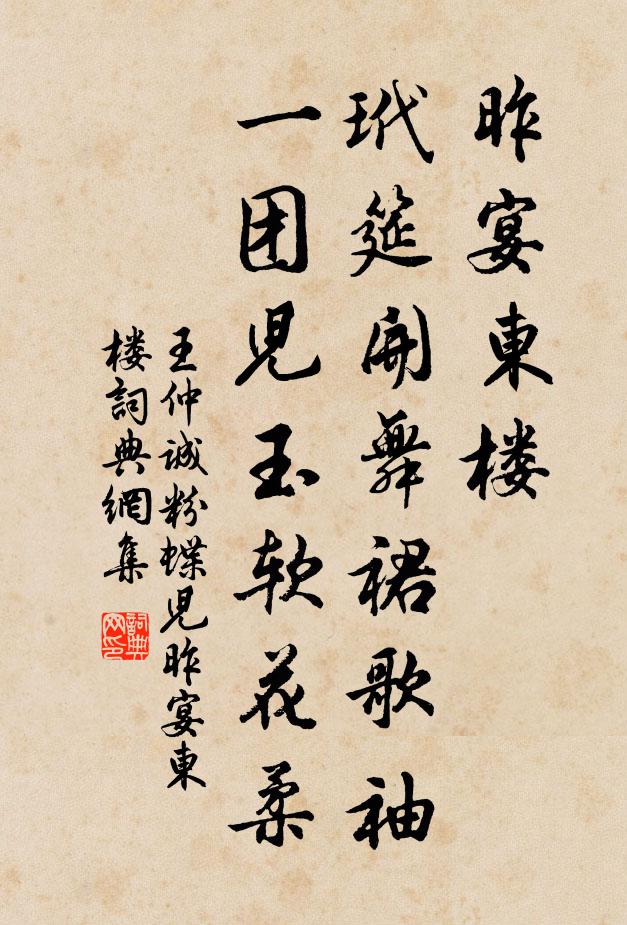 昨宴東楼
玳筵開舞裙歌袖
一团児玉软花柔
王仲诚粉蝶児昨宴東
楼詞典網集
詞典网印